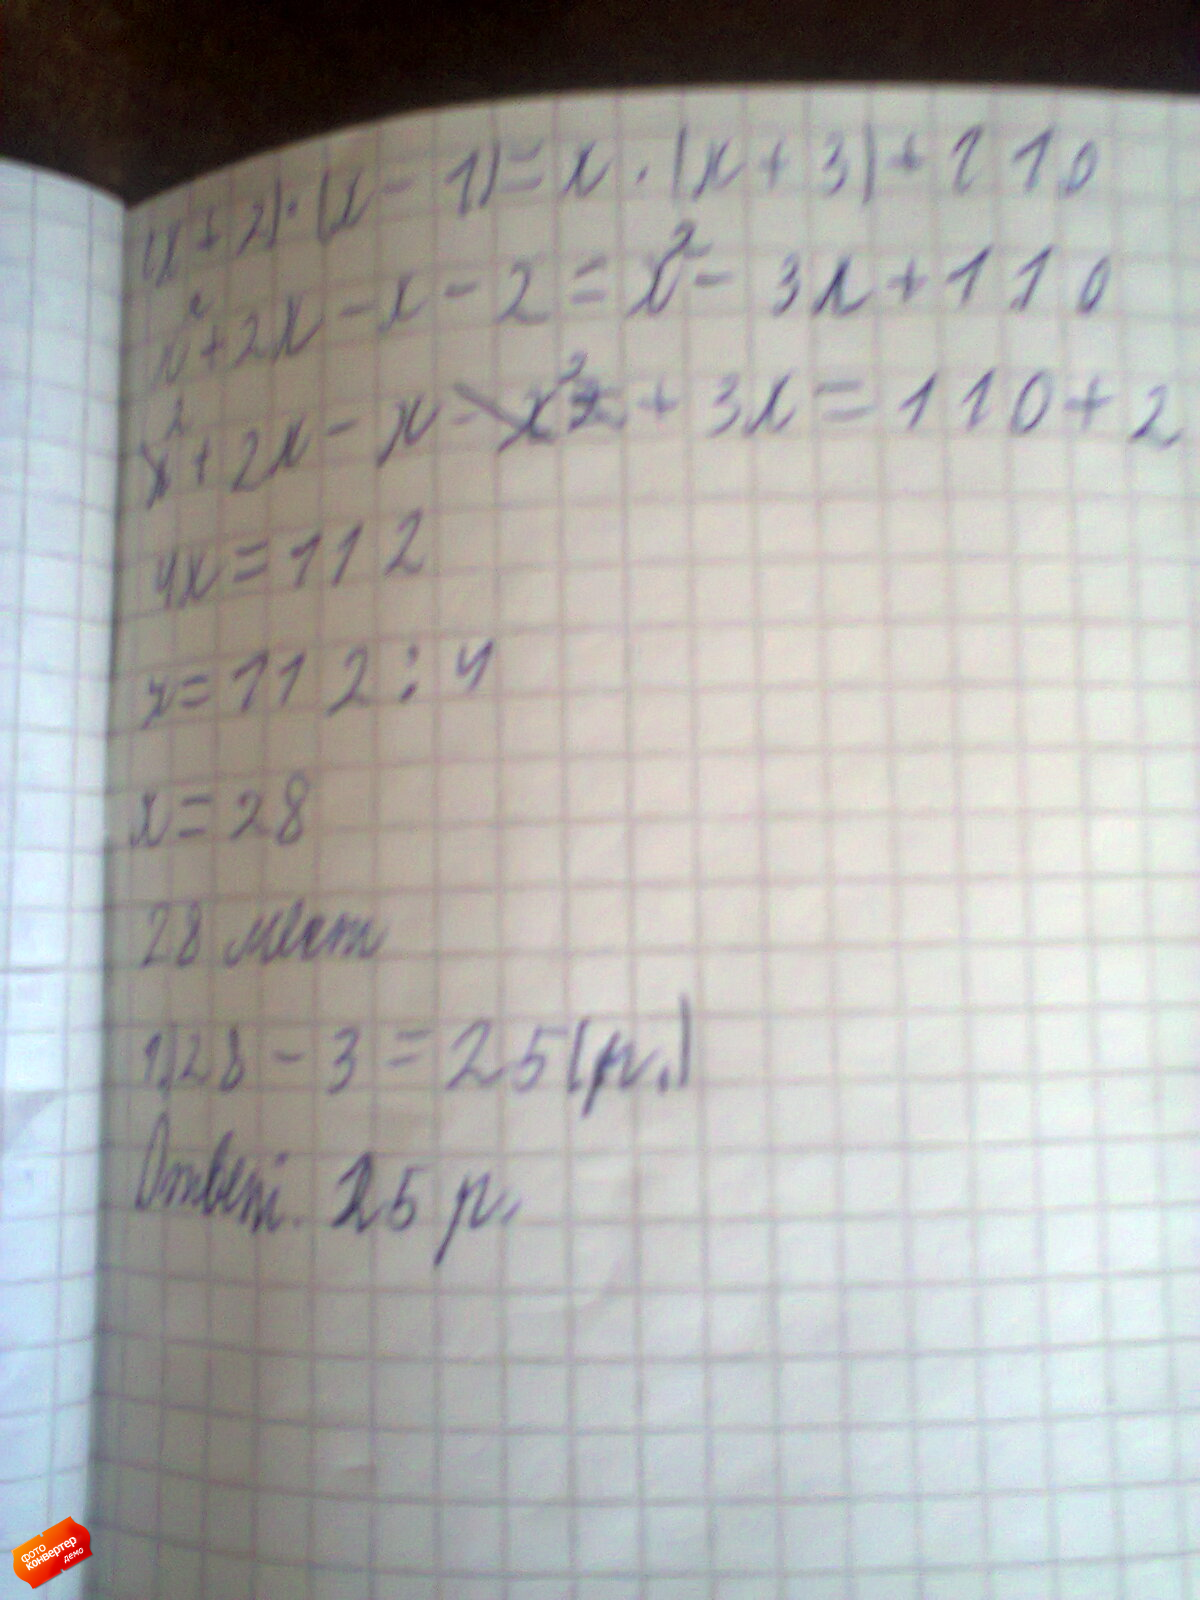 (x+2)·(x-1)=x·(x+3)+110
x²+2x-x-2=x²-3x+110
x²+2x-x-x²+3x=110+2
4x=112
x=112:4
x=28
28 мест
1)28-3=25(р.)
Ответ. 25 р.
фото
конвертер
демо